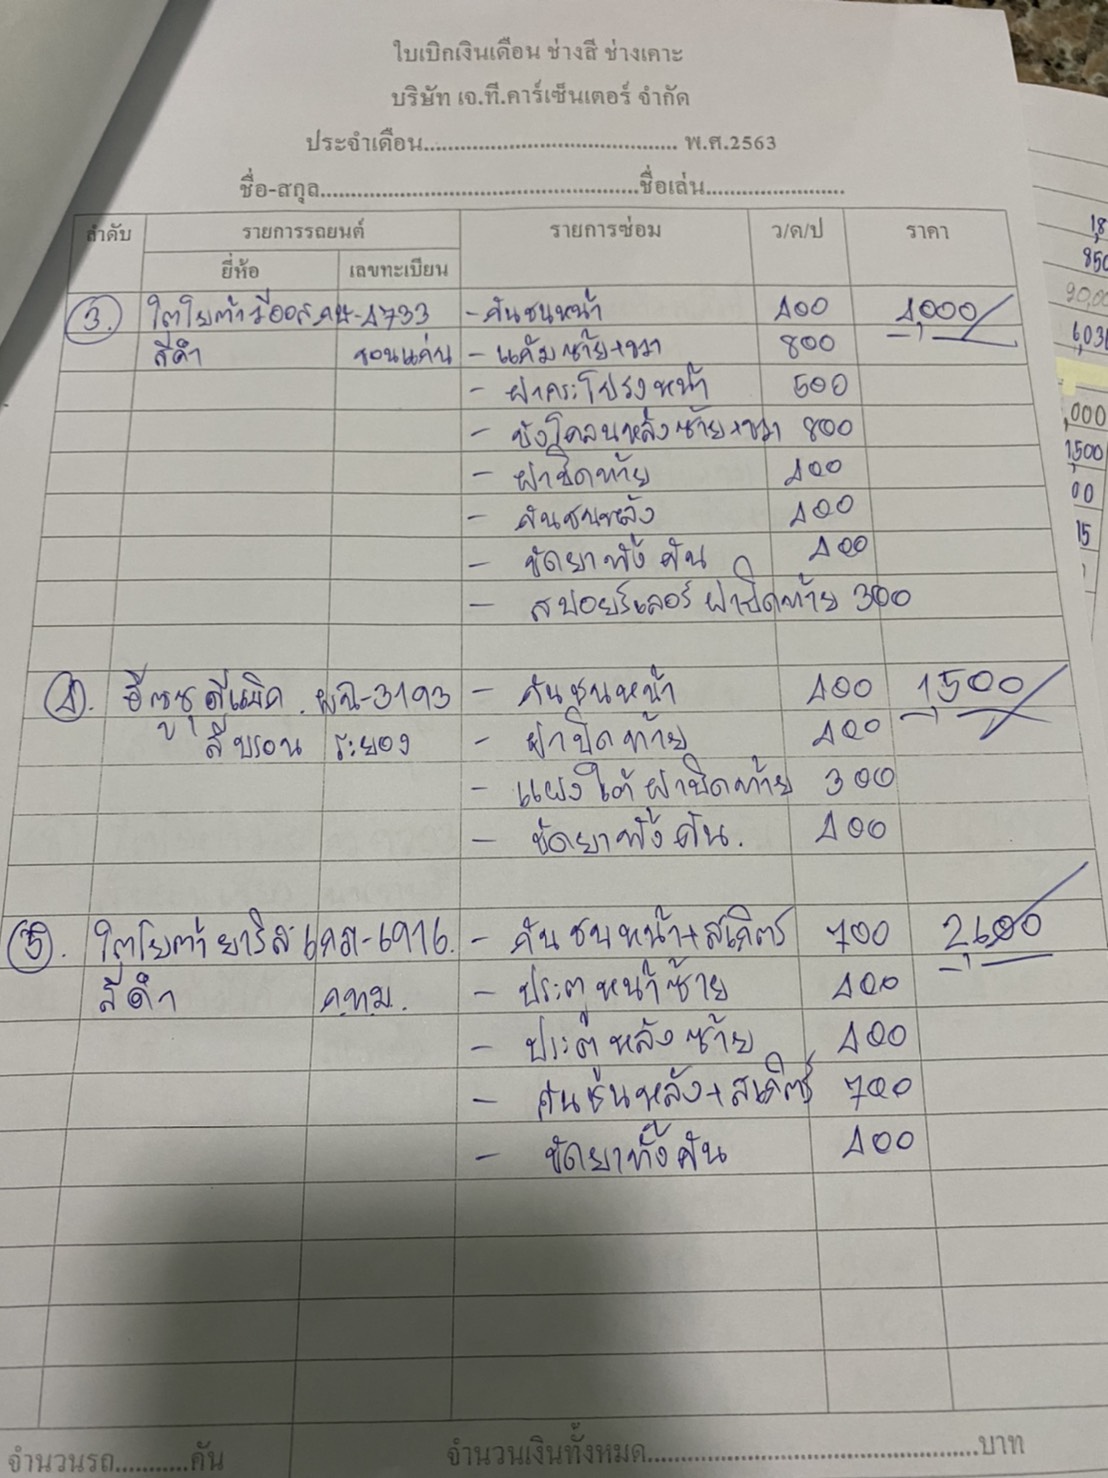 ใบเบิกเงินเดือน ช่างสี ช่างเคาะ
บริษัท เจ.ที.คาร์เซ็นเตอร์ จำกัด
ประจำเดือน.......................................... พ.ศ.2563
ชื่อ-สกุล..............................................ชื่อเล่น....................
ลำดับ รายการรถยนต์ รายการซ่อม ว/ด/ป ราคา
ยี่ห้อ เลขทะเบียน
3. โตโยต้าวีออส -4733 - กันชนหน้า 400 4,000
สีดำ ขอนแก่น - แก้มซ้าย+ขวา 800
- ฝากระโปรงหน้า 500
- บังโคลนหลังซ้าย+ขวา 800
- ฝาปิดท้าย 400
- กันชนหลัง 400
- ขัดยาทั้งคัน 400
- สปอยร์เลอร์ฝาปิดท้าย 300
4. อีซูซุดีแม็ค ผฉ-3193 - กันชนหน้า 400 1,500
สีบรอน ระยอง - ฝาปิดท้าย 400
- แผงใต้ฝาปิดท้าย 300
- ขัดยาทั้งคัน. 400
5. โตโยต้ายาริส -6916. - กันชนหน้า+สเกิตร์ 700 2,600
สีดำ ก.ท.ม. - ประตูหน้าซ้าย 400
- ประตูหลังซ้าย 400
- กันชนหลัง+สเกิตร์ 700
- ขัดยาทั้งคัน 400
จำนวนรถ...........คัน จำนวนเงินทั้งหมด..................................................บาท
850
90,00
6,03
,000
1,500
00
15